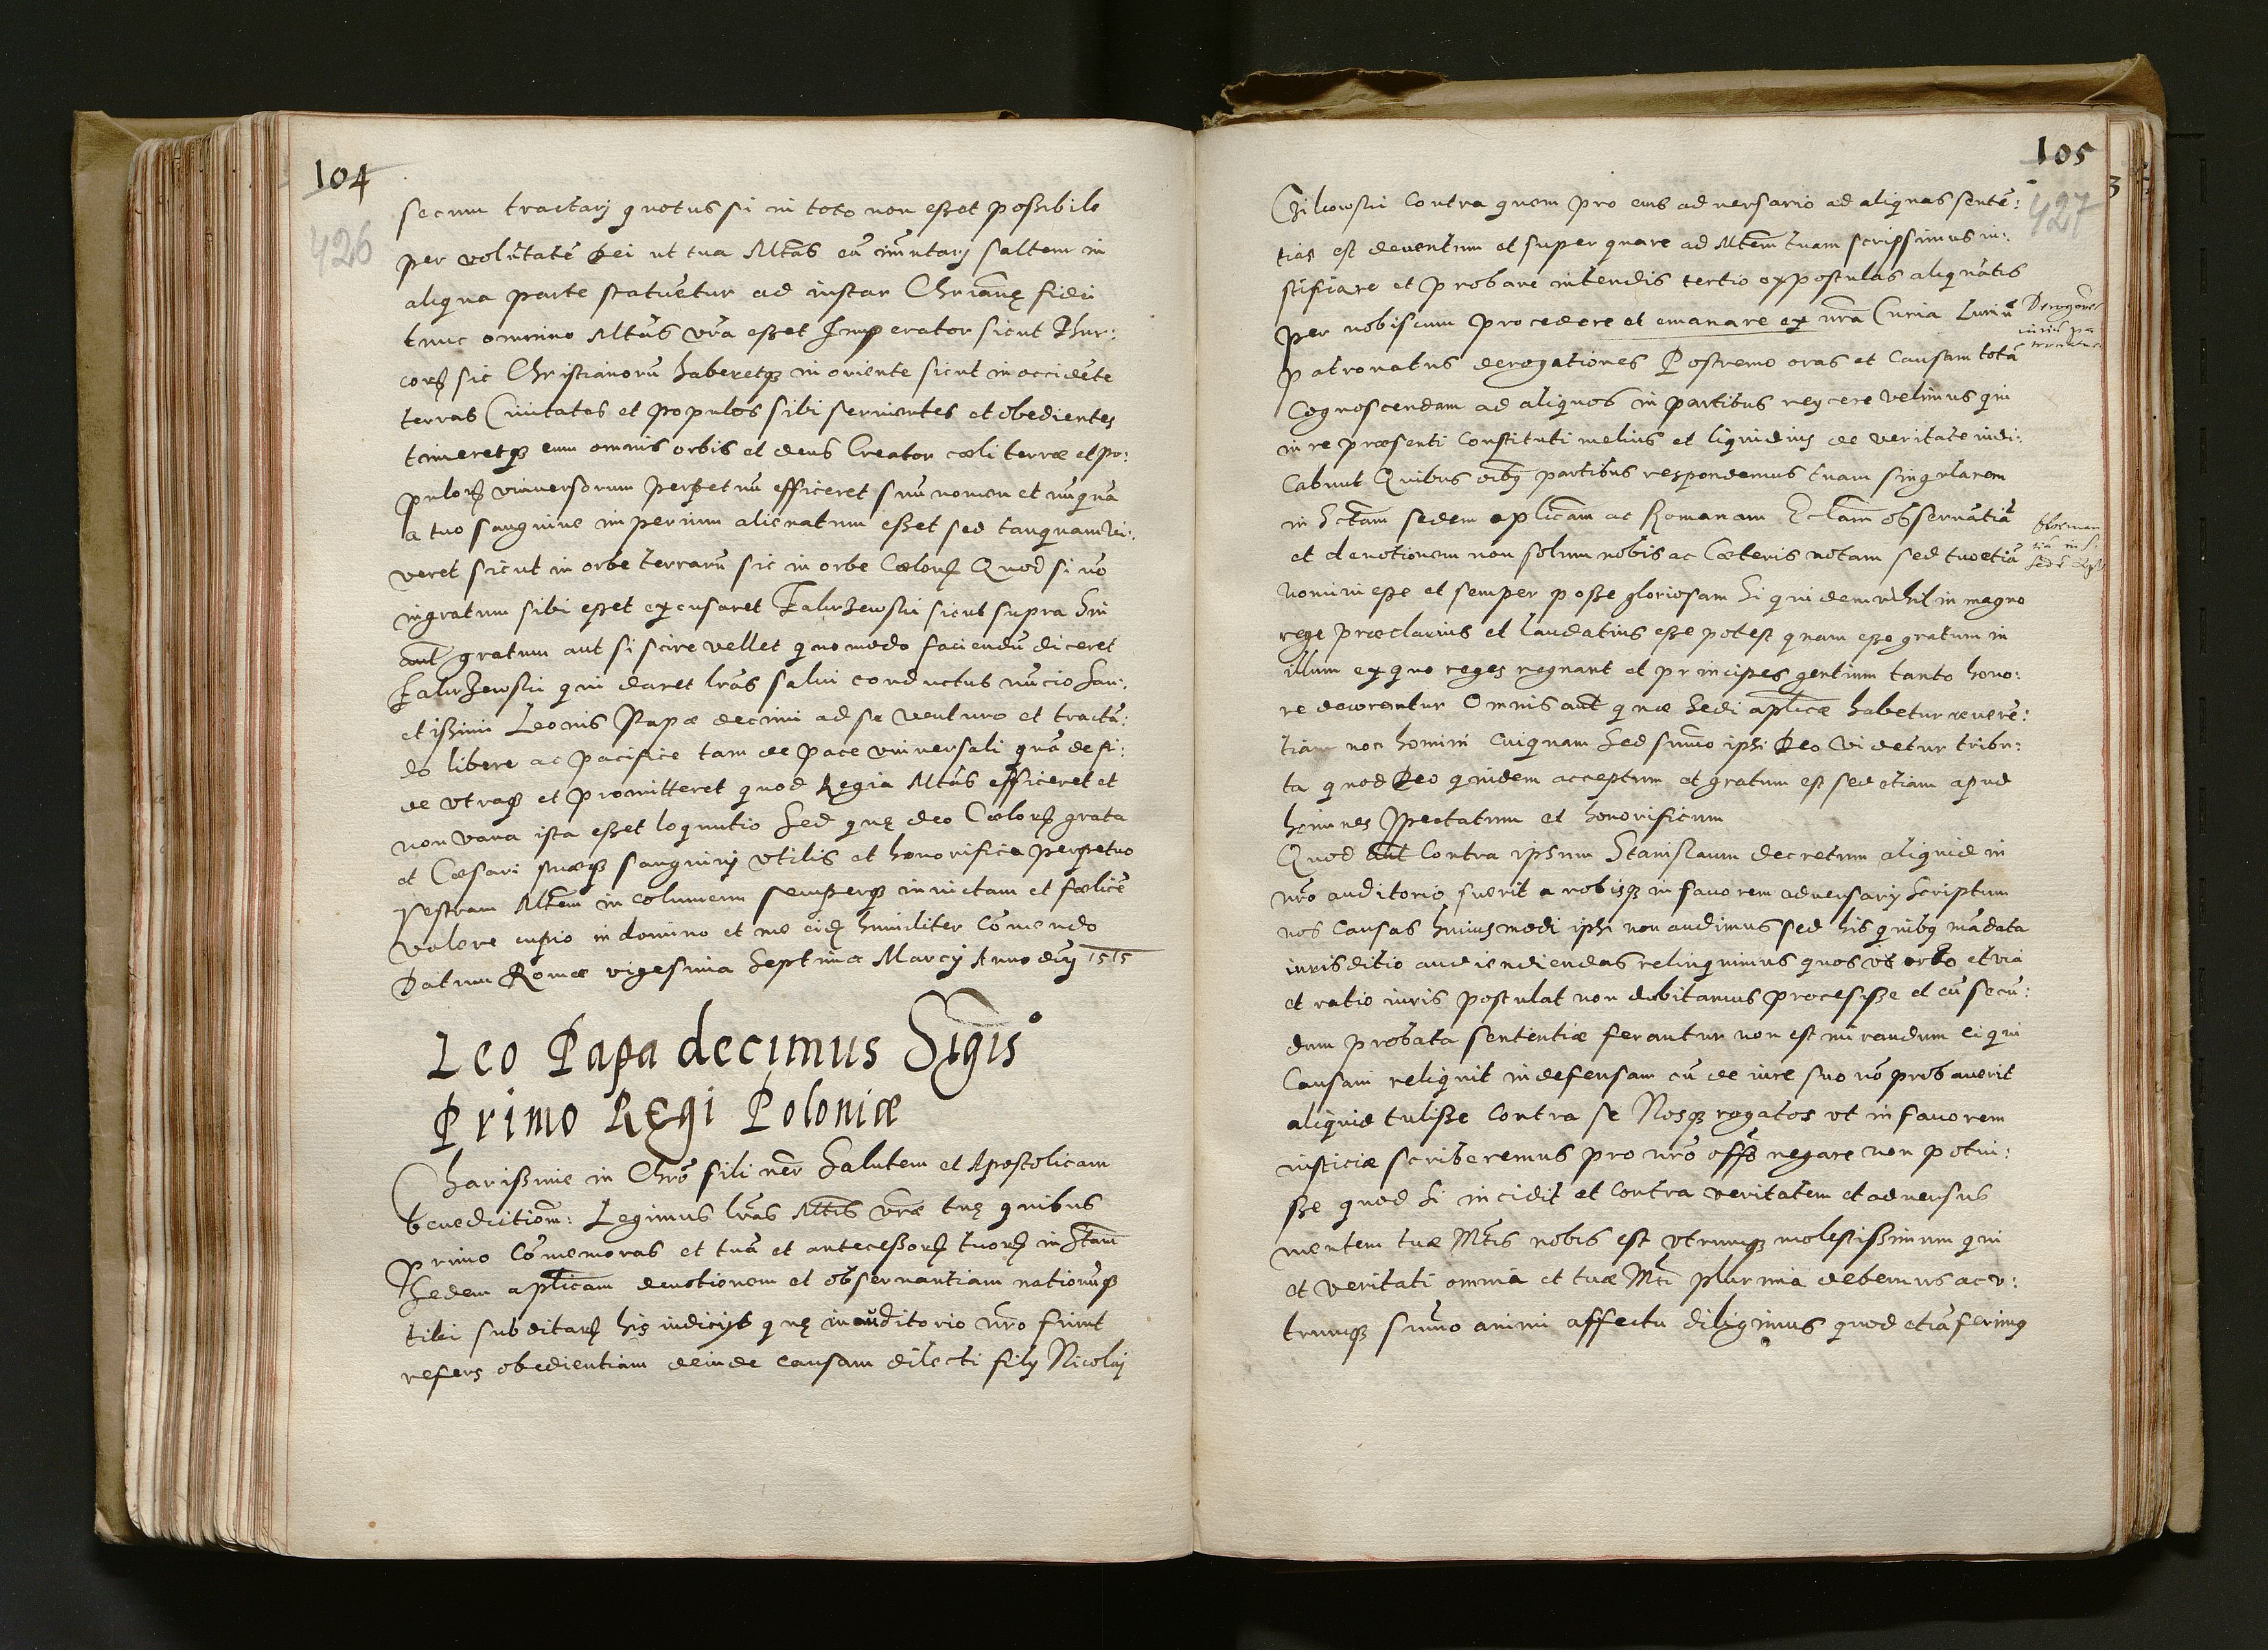 104
426
secum tractarj quotussi in toto non esset possibile
per volũtatẽ Dei ut tua Mtas eã imutarj saltem in
aliqua parte statuetur ad instar Chrianę fidei
tunc omnino Mtas vra esset Imperator sicut Thur:
corũ sic Christianorũ haberetq3 in oriente sicut in occidẽte
terras Ciuitates et populos sibi seruientes et obedientes
timeretq3 eum omnis orbis et deus Creator cœli terræ et po:
pulorũ vniuersorum perpetuũ efficeret suũ nomen et nũquã
a tuo sanguine imperium alienatum esset sed tanquam vi:
veret sicut in orbe terrarũ sic in orbe Cœlorũ Quod si uo
ingratum sibi esset excusaret Jalurzewski sicut supra Sin
aut gratum aut si scire vellet quomodo faciendũ diceret
Jalurzewski qui daret lras salui conductus nũcio San:
ctissimi Leonis Papæ decimi ad se venturo et tractã:
do libere ac pacifice tam de pace vniuersali quã de fi:
de vtraq3 et promitteret quod Regia Mtas efficeret et
non vana ista esset loquutio Sed quę deo Cœlorũ grata
et Cæsari suæq3 sanguinj vtilis et honorifica perpetuo
Vestram Mtem in columem semperq3 inuictam et fœlicẽ
valere cupio in domino et me eidẽ humiliter Cõmendo
Datum Romæ vigesima Septima Marcij Anno dnj 1515
Leo Papa decimus Sigis°
Primo REgi Poloniæ
Charissime in Chro fili ner Salutem et Apostolicam
benedictiom: Legimus lras Mtis vræ tuę quibus
primo Cõmemoras et tuã et antecessorũ tuorũ in Stam
Sedem aplicam deuotionem et obseruantiam nationũq3
tibi subditarũ his iudicijs quę in auditorio nro fiunt
refers obedientiam deinde causam dilecti filij Nicolaj
105
427
3
Chilcowski Contra quem pro eius aduersario ad aliquas sentẽ:
tias est deuentum et super quare ad Mtem tuam scripsimus iu:
stificare et probare intendis tertio expostulas aliquãtis
per nobiscum procedere et emanare ex nra Curia Iuriũ
patronatus derogationes Postremo oras et Causam totã
Cognoscendam ad aliquos in partibus reycere velimus qui
in re præsenti Constituti melius et liquidius de veritate iudi:
Cabunt Quibus oibq partibus respondemus tuam singularem
in Sctam sedem aplicam ac Romanam Ecclam obseruãtiã
et deuotionem non solum nobis ac Cæteris notam sed tuo etiã
Nomini esse et semper posse gloriosam Si quidem nihil in magno
rege præclarius et laudatius esse potest quam esse gratum in
illum ex quo reges regnant et principes gentium tanto hono:
re decorantur Omnis aut quæ Sedi aplicæ habetur reuerẽ:
tiam non homini cuiquam Sed sumo ipsi Deo Videtur tribu:
ta quod Deo quidem acceptum et gratum est sed etiam apud
homines Spectatum et honorificum
Quod aut Contra ipsum Stanislaum decretum aliquid in
nro auditorio fuerit a nobisq3 in fauorem aduersarij scriptum
nos Causas huiusmodi ipsi non audimus sed his quibq mãdata
iurisditio audiendiendas relinquimus quos vt ordo et via
et ratio iuris postulat non dubitamus processisse et cũ secũ:
dum probata sententiæ ferantur non est mirandum ei qui
Causam reliquit indefensam cũ de iure suo nõ probauerit
aliquid tulisse Contra se Nosq3 rogatos vt in fauorem
iusticiæ scriberemus pro nro offo negare non potui:
sse quod si incidit et Contra veritatem et aduersus
mentem tuæ Mtis nobis est vtrumq3 molestissimum qui
et veritati omnia et tuæ Mti plurima debemus ac v:
trumq3 sumo animi affectu diligimus quod etiã ferimq
Derogãones
iuris pa
tronatus
Obseruan
tia in S.
Sedẽ Apl